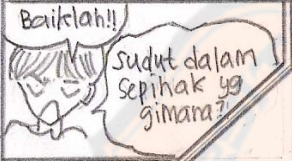 Baiklah!!
Sudut dalam
sepihak yg
gimana?!